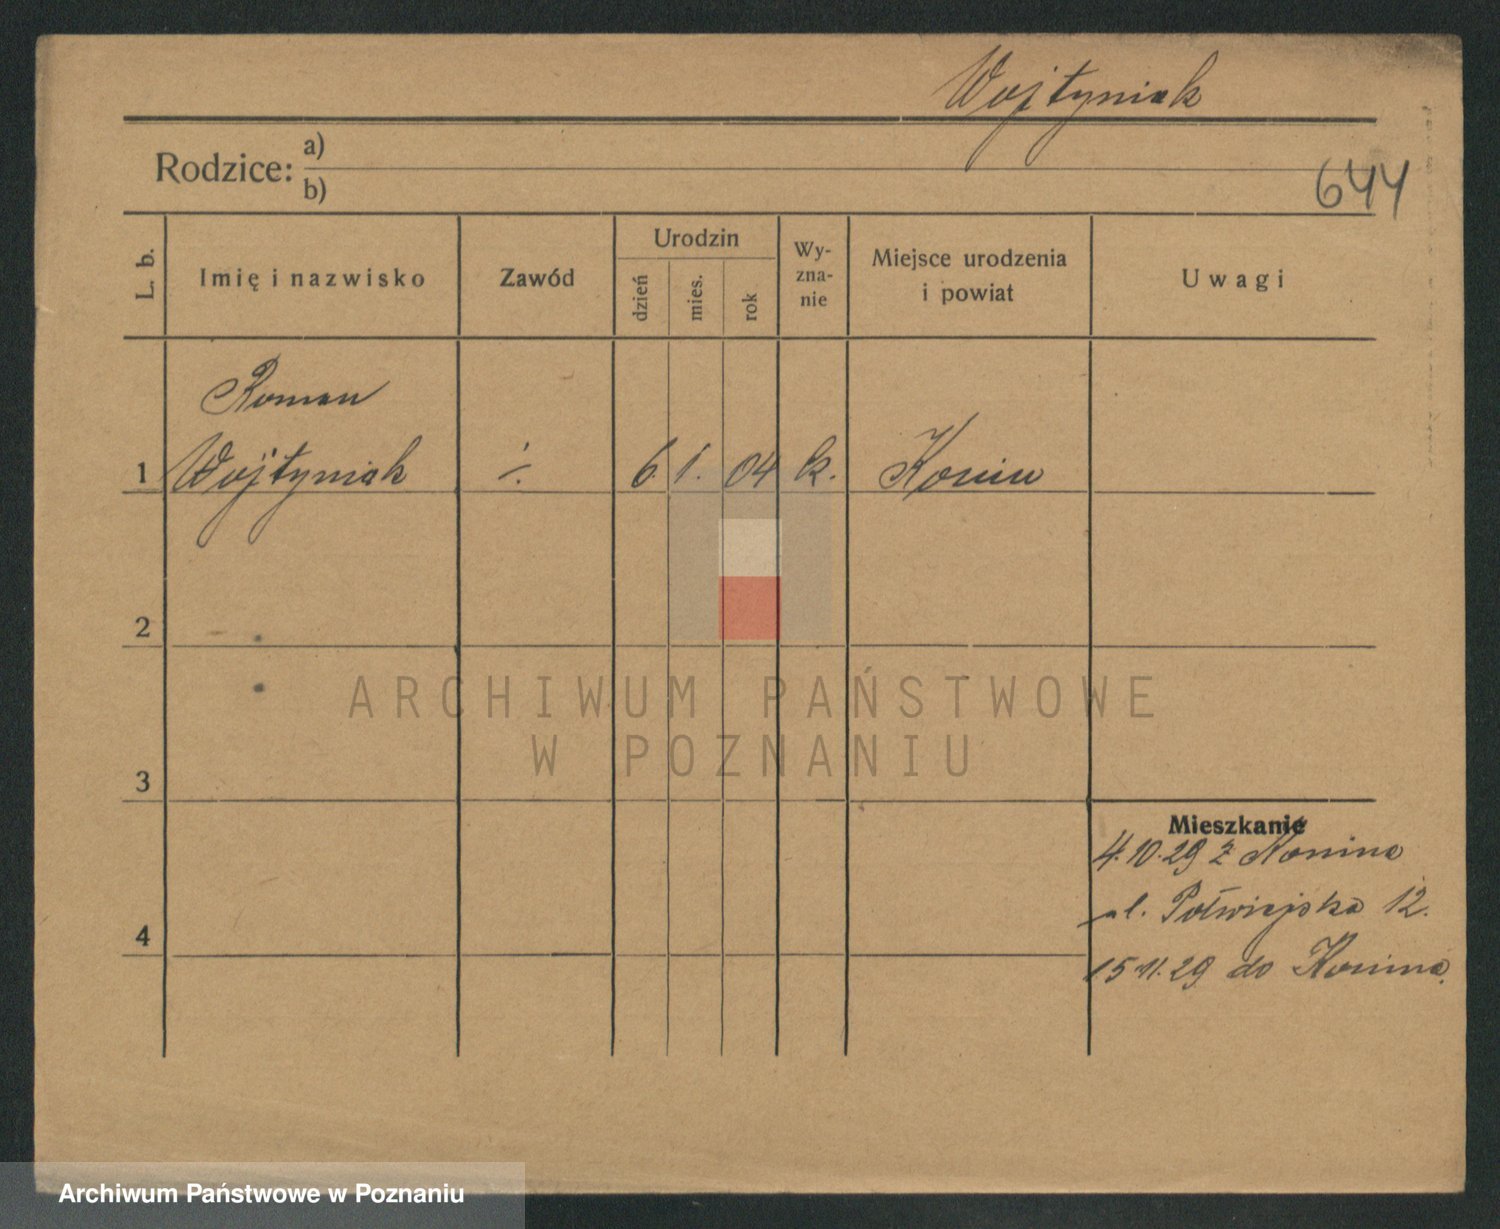 Wojtyniak
Rodzice: a)
b)
644
L. b.
Imię i nazwisko
Zawód
Urodzin
dzień
mies.
rok
Wy-
zna-
nie
Miejsce urodzenia
i powiat
Uwagi
Roman
1 Wojtyniak ·/. 6. 1. 04 k. Konin
2
3
4
Mieszkanie
4.10.29 z Konina
ul. Półwiejska 12.
15.11.29 do Konina.
ARCHIWUM PAŃSTWOWE
W POZNANIU
Archiwum Państwowe w Poznaniu